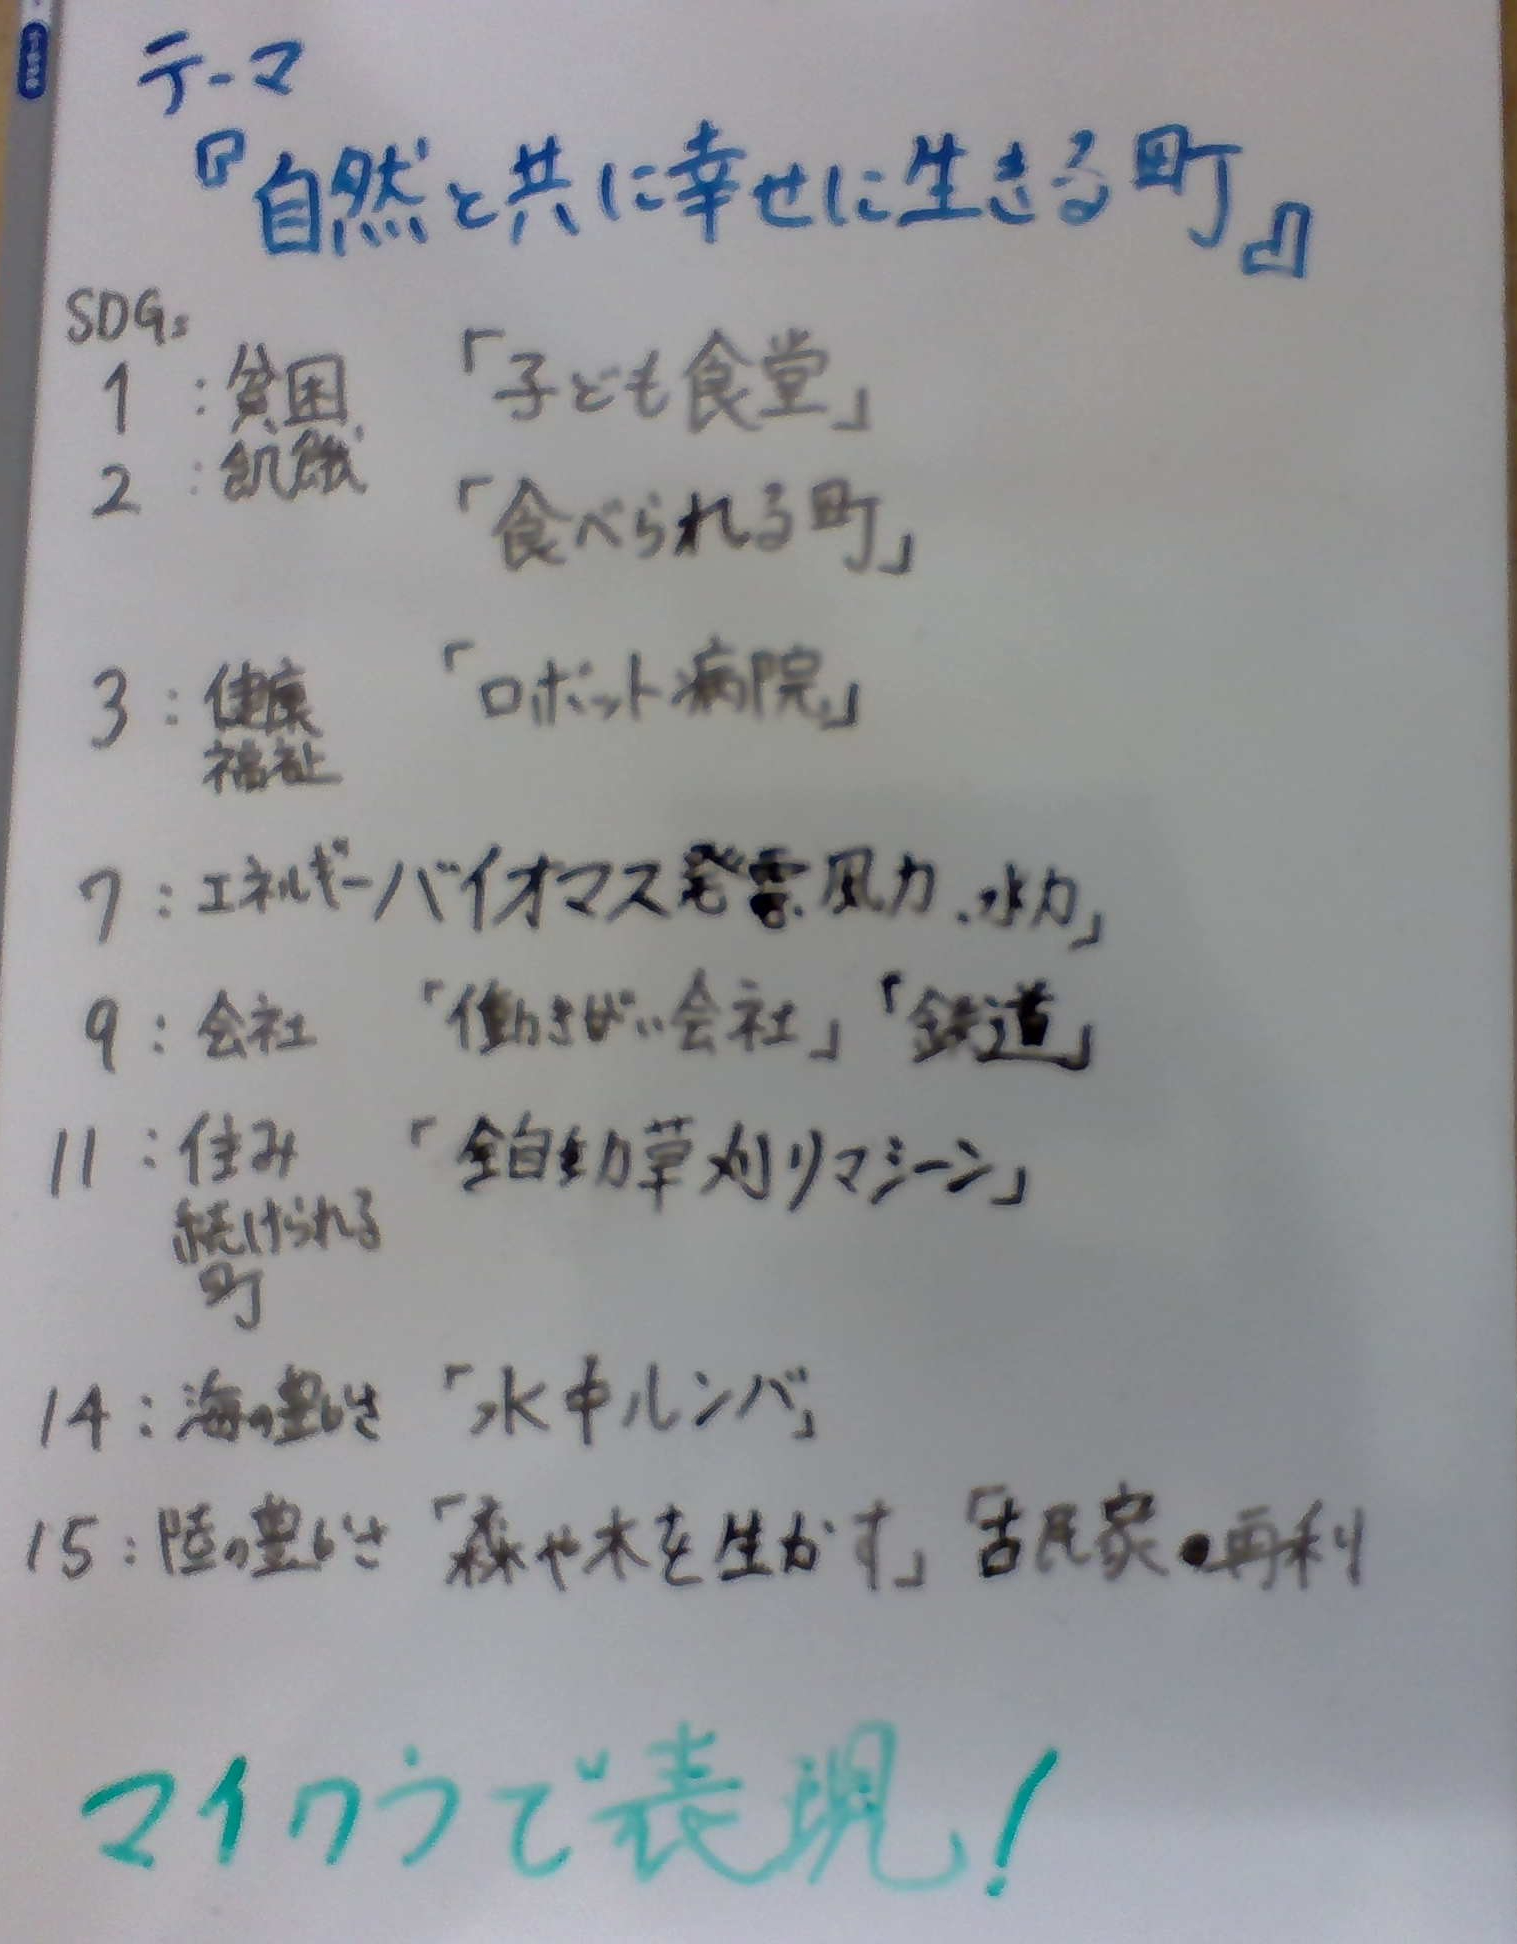 テーマ
『自然と共に幸せに生きる町』
SDGs
1 : 貧困 「子ども食堂」
2 : 飢餓
「食べられる町」
3 : 健康 「ロボット病院」
福祉
7 : エネルギーバイオマス発電.風力、水力」
9 : 会社 「働きがい会社」「鉄道」
11 : 住み 「全自動草刈りマシーン」
続けられる
町
14 : 海の豊かさ 「水中ルンバ」
15 : 陸の豊かさ 「森や木を生かす」「古民家・再利
マイクラで表現!